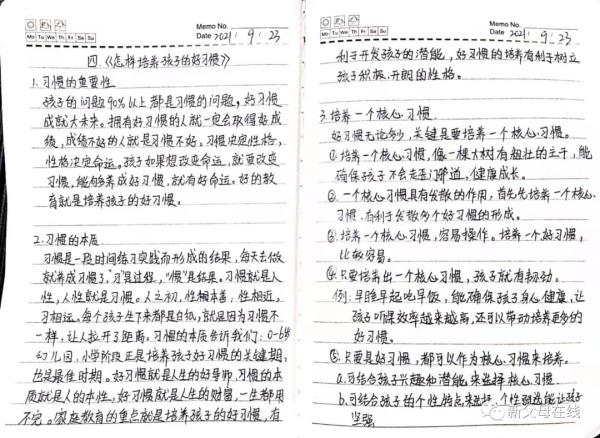 Memo No.
Mo Tu We Th Fr Sa Su
Date 2021. 9. 23
四.《怎样培养孩子的好习惯》
1.习惯的重要性
孩子的问题90%以上都是习惯的问题，好习惯
成就大未来。拥有好习惯的人就一定会取得好成
绩，成绩不好的人就是习惯不好，习惯决定性格，
性格决定命运。孩子如果想改变命运，就要改变
习惯，能够养成好习惯，就有好命运。好的教
育就是培养孩子的好习惯。
2.习惯的本质
习惯是一段时间练习实践而形成的结果，每天去做
就养成习惯了，"习"是过程，"惯"是结果。习惯就是人
性，人性就是习惯。人之初，性相本善，性相近，
习相远。每个孩子生下来都是白纸，就是因为习惯不
一样，让人拉开了距离。习惯的本质告诉我们：0-6岁
幼儿园，小学阶段正是培养孩子好习惯的关键期，
也是最佳时期。好习惯就是人生的好导师，习惯的本
质就是人的本性，好习惯就是人生的财富，一生都用
不完。家庭教育的重点就是培养孩子的好习惯，有
Memo No.
Mo Tu We Th Fr Sa Su
Date 2021. 9. 23
利于开发孩子的潜能，好习惯的培养有利于树立
孩子积极、开朗的性格。
3.培养一个核心习惯
好习惯无论多少，关键是要培养一个核心习惯。
①培养一个核心习惯，像一棵大树有粗壮的主干，能
确保孩子不会走歪门邪道，健康成长。
②.一个核心习惯具有发散的作用，首先先培养一个核心
习惯，有利于发散多个好习惯的形成。
③.培养一个核心习惯，容易操作。培养一个好习惯，
比较容易。
④.只要培养出一个核心习惯，孩子就有韧劲。
例：早睡早起吃早饭，能确保孩子身心健康，让
孩子听课效率越来越高，还可以带动培养更多的
好习惯。
⑤.只要是好习惯，都可以作为核心习惯来培养。
a.可结合孩子兴趣和潜能来选择核心习惯
b.可结合孩子的个性特点来选择，个性弱选能让孩子
坚强
新父母在线